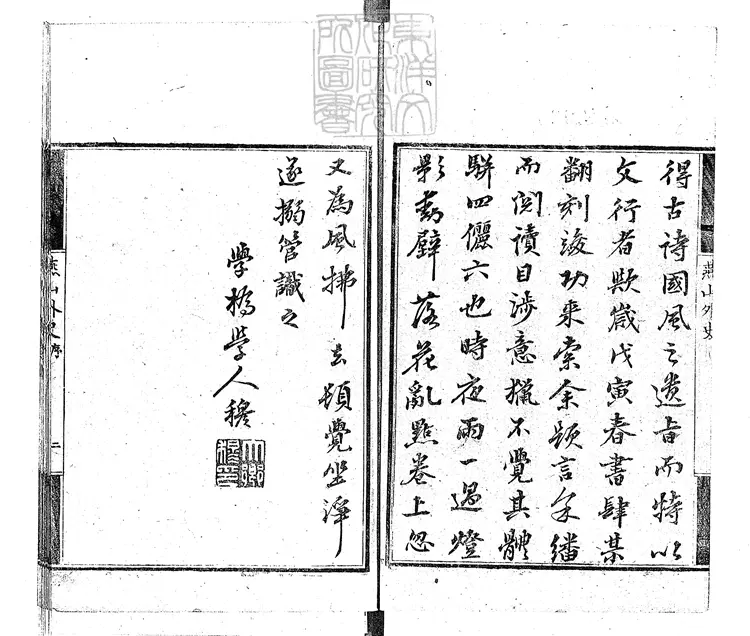 東洋文
化研究
所圖書
得古詩國風之遺旨而特以
文行者歟歲戊寅春書肆某
翻刻竣功来索余題言余繙
而閱讀目涉意獵不覺其體
駢四儷六也時夜雨一過燈
影動壁落花亂點卷上忽
又為風拂去頓覺坐淨
遂搦管識之
學橋學人穆
燕山外史
燕山外史 序 二